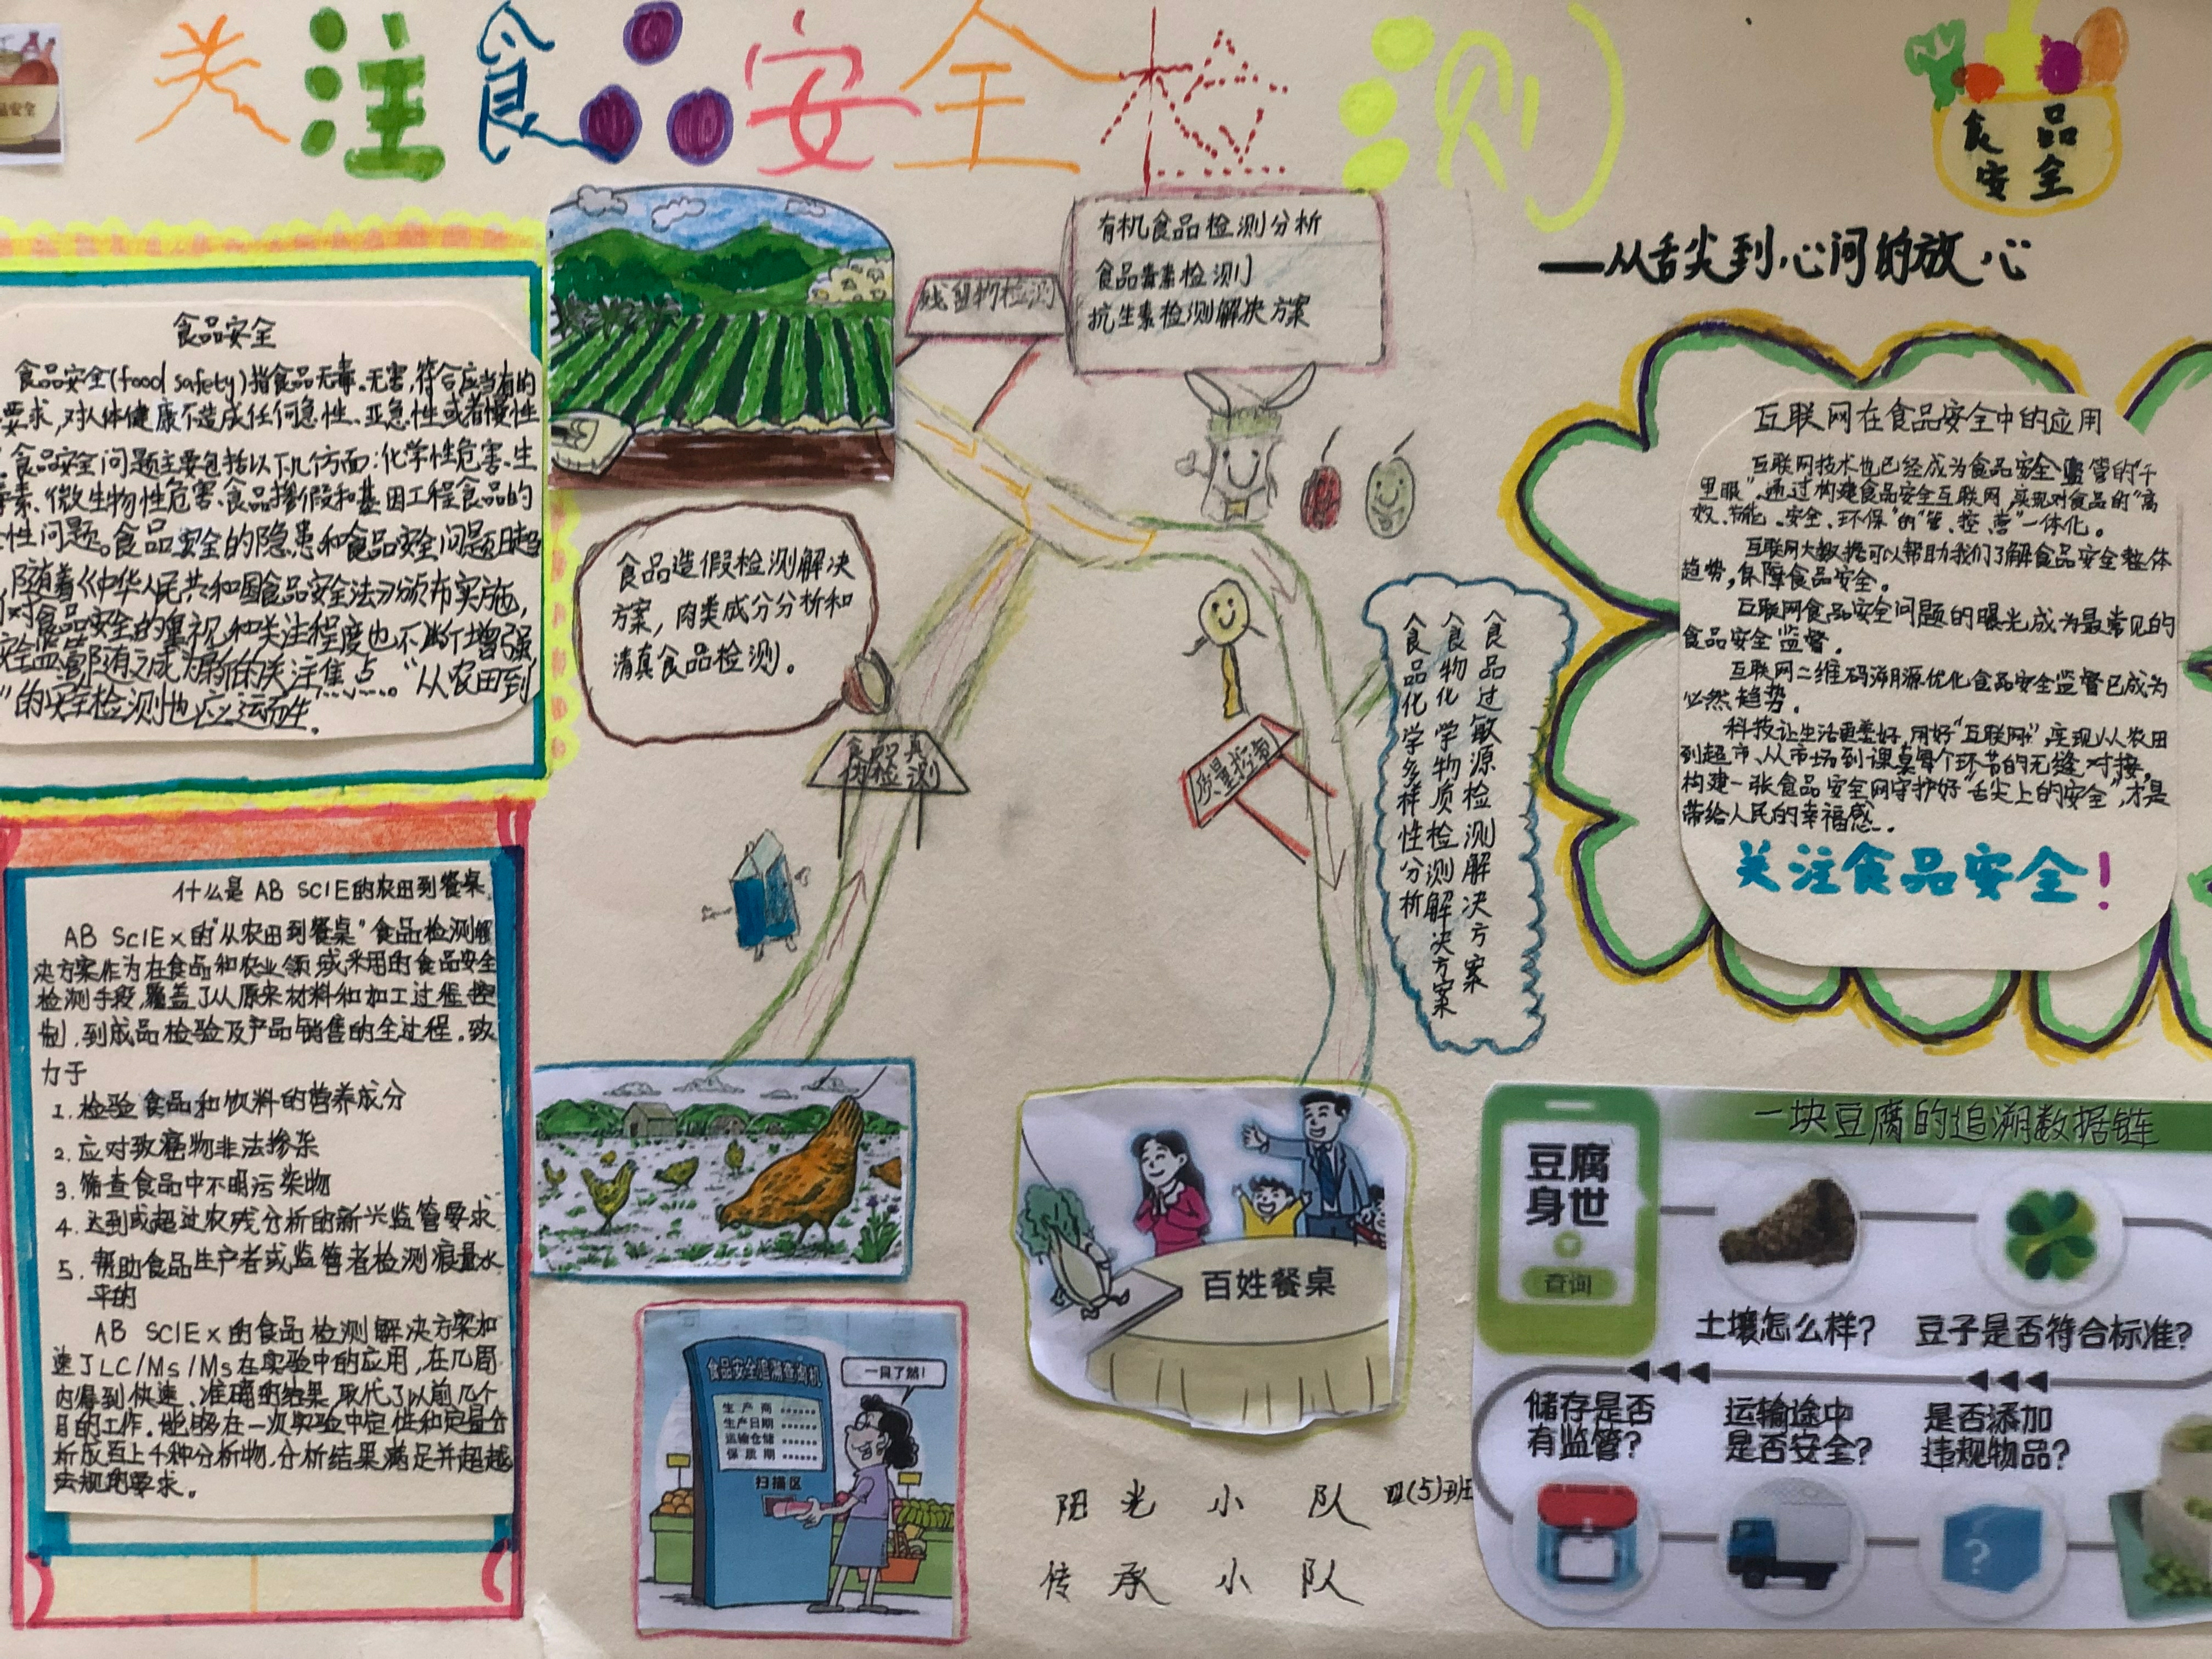 关注食品安全检测
食品
安全
——从舌尖到心间的放心
食品安全
食品安全(food safety)指食品无毒、无害,符合应当有的
要求,对人体健康不造成任何急性、亚急性或者慢性
食品安全问题主要包括以下几个方面:化学性危害、生
毒素、微生物性危害、食品掺假和基因工程食品的
性问题。食品安全的隐患和食品安全问题日趋
随着《中华人民共和国食品安全法》颁布实施,
们对食品安全的重视和关注程度也不断增强
安全监管随之成为新的关注焦点。“从农田到
”的安全检测也应运而生.
什么是 AB SCIE的农田到餐桌
AB SCIEx的“从农田到餐桌”食品检测解
决方案作为在食品和农业领域采用的食品安全
检测手段,覆盖了从原来材料和加工过程控
制,到成品检验及产品销售的全过程.致
力于
1.检验食品和饮料的营养成分
2.应对致癌物非法掺杂
3.筛查食品中不明污染物
4.达到或超过农残分析的新兴监管要求
5.帮助食品生产者或监管者检测痕量水
平的
AB SCIEx的食品检测解决方案加
速了LC/Ms/Ms在实验中的应用,在几周
内得到快速、准确的结果,取代了以前几个
月的工作.能够在一次实验中定性和定量分
析成百上千种分析物,分析结果满足并超越
法规的要求。
残留物检测
有机食品检测分析
食品毒素检测
抗生素检测解决方案
食品造假检测解决
方案,肉类成分分析和
清真食品检测。
食品真
伪检测
质量控制
食品过敏源检测解决方案
食物化学物质检测解决方案
食品化学多样性分析
互联网在食品安全中的应用
互联网技术也已经成为食品安全监管的“千
里眼”,通过构建食品安全互联网,实现对食品的“高
效、节能、安全、环保”的“管、控、营”一体化。
互联网大数据可以帮助我们了解食品安全整体
趋势,保障食品安全。
互联网食品安全问题的曝光成为最常见的
食品安全监督.
互联网二维码溯源优化食品安全监督已成为
必然趋势.
科技让生活更美好,用好“互联网+”,实现从农田
到超市、从市场到课桌每个环节的无缝对接,
构建一张食品安全网守护好“舌尖上的安全”,才是
带给人民的幸福感.
关注食品安全!
食品安全追溯查询机
生产商……
生产日期……
运输仓储……
保质期……
扫描区
一目了然!
百姓餐桌
阳光小队 四(5)班
传承小队
一块豆腐的追溯数据链
豆腐
身世
查询
土壤怎么样?
豆子是否符合标准?
储存是否
有监管?
运输途中
是否安全?
是否添加
违规物品?
?